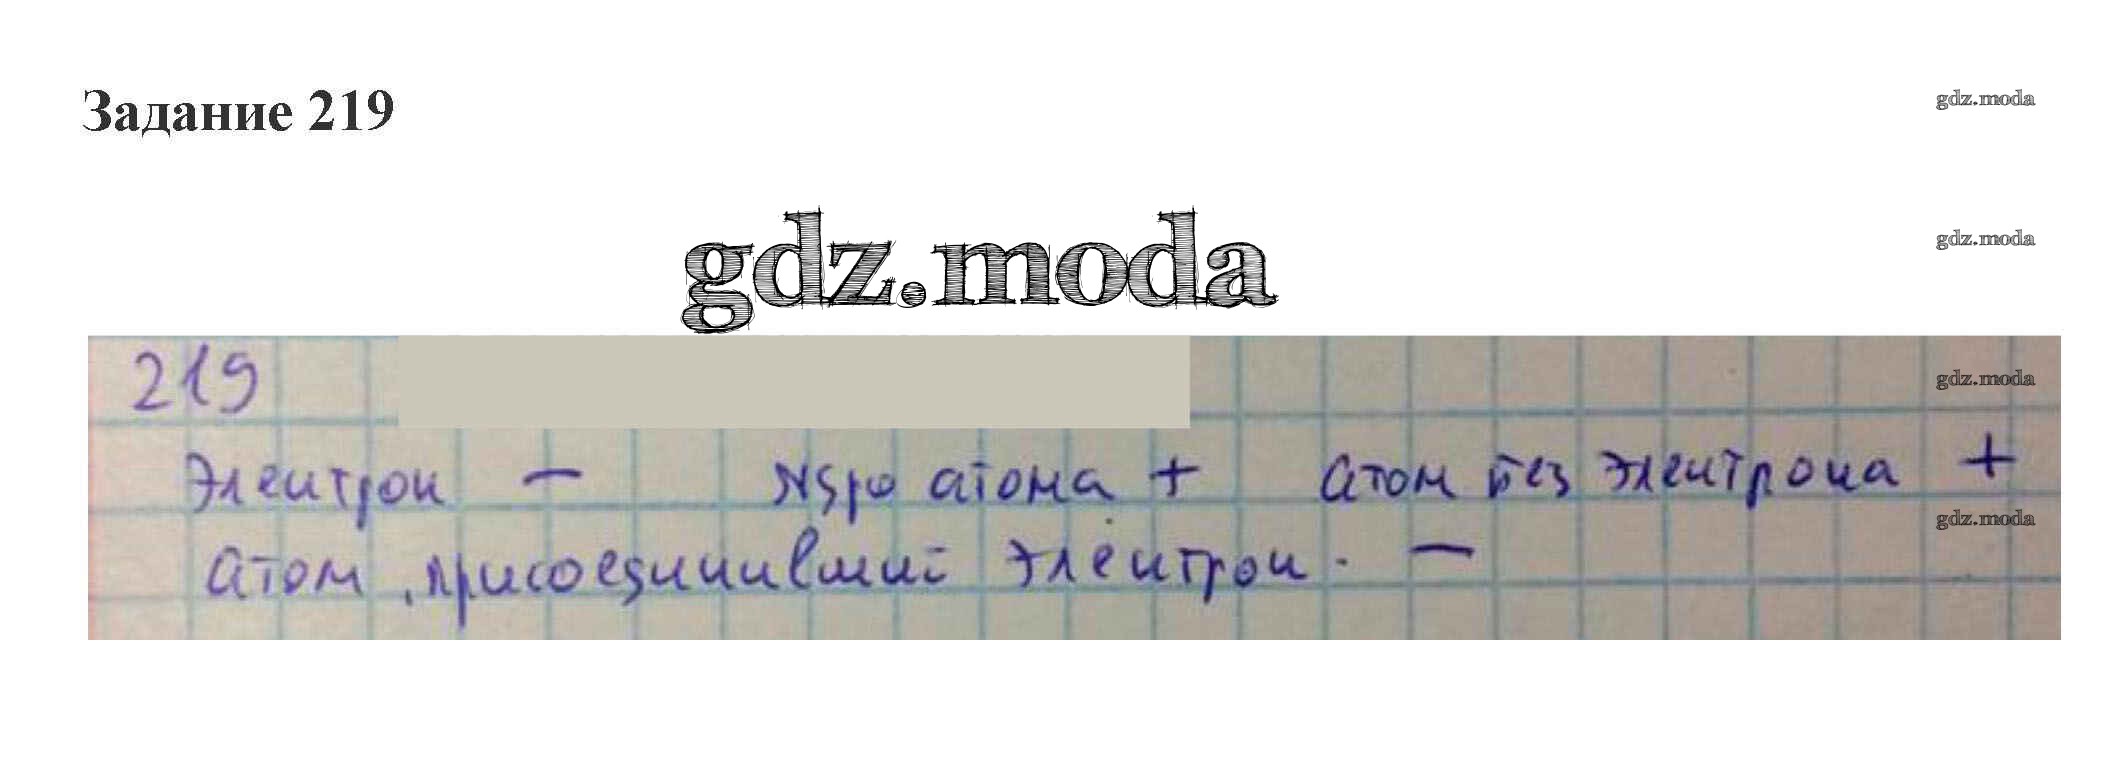 Задание 219
gdz.moda
gdz.moda
gdz.moda
219
gdz.moda
Электрон − Ядро атома + атом без электрона +
gdz.moda
атом, присоединивший электрон. −